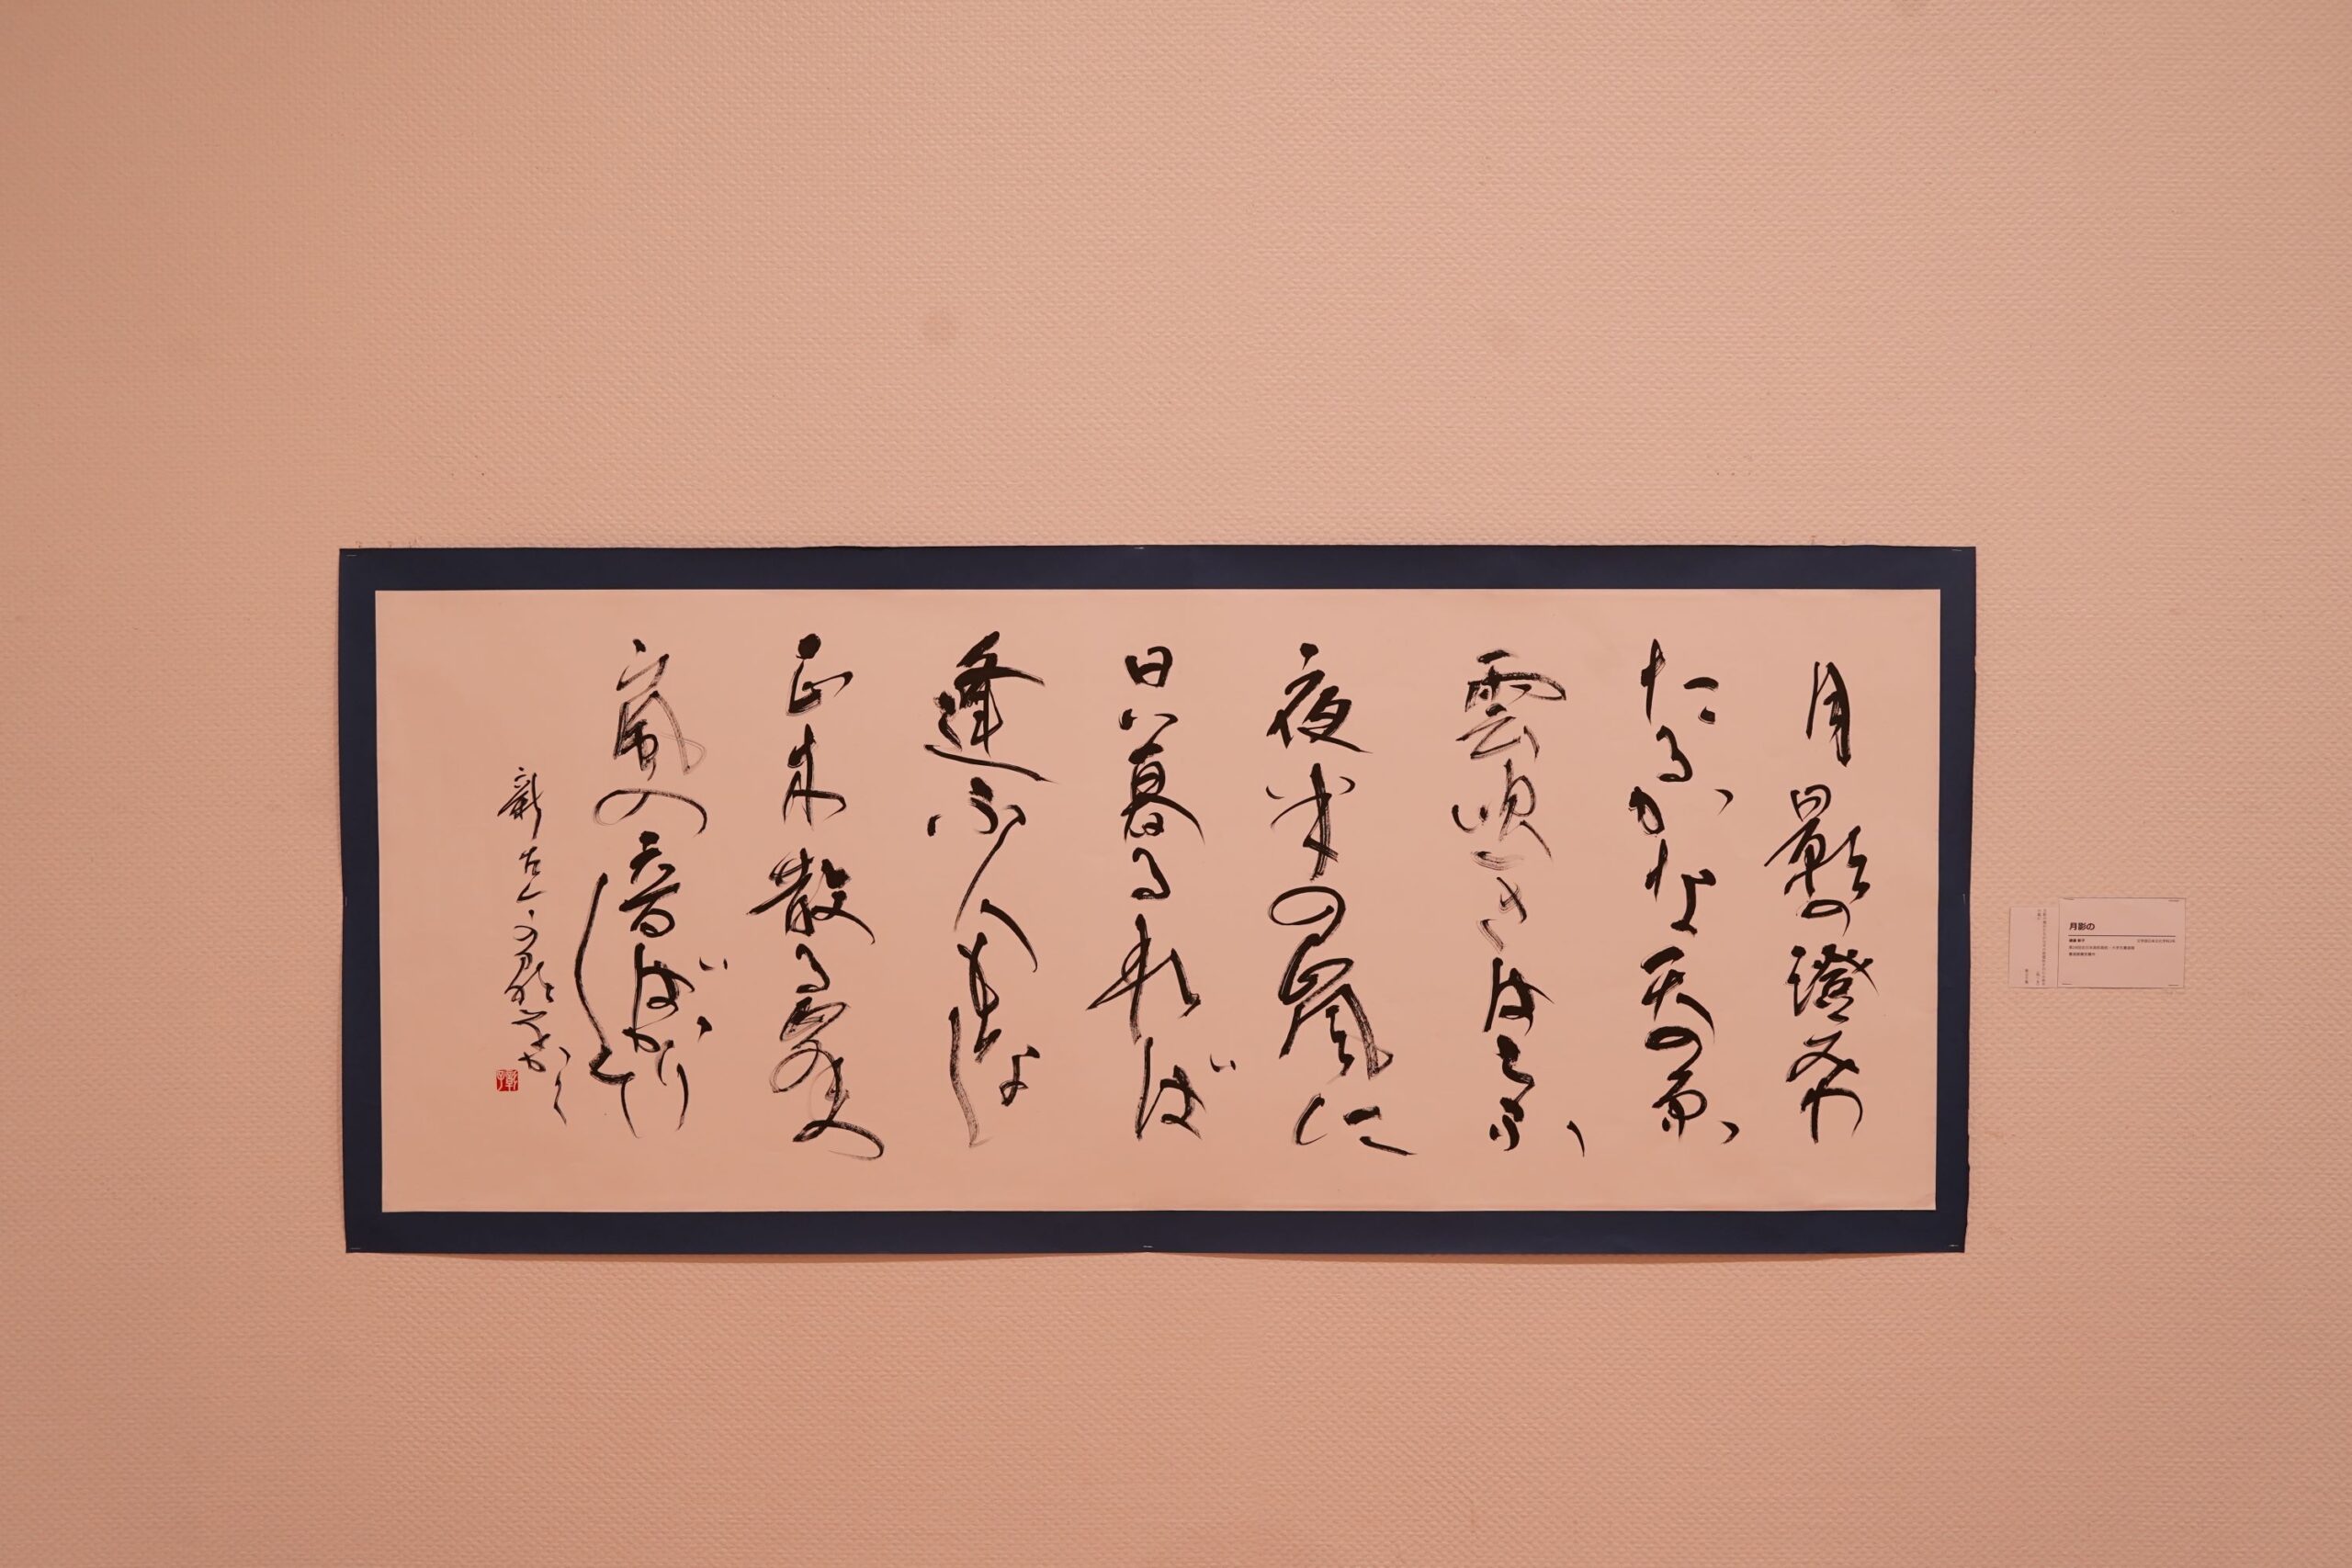 月影の澄みわ
たるかな天の原
雲吹きはらふ
夜半の嵐に
日暮るれば
逢ふ人もなし
正木散る峯の
嵐の音ばかりして
新古今の歌
月影の